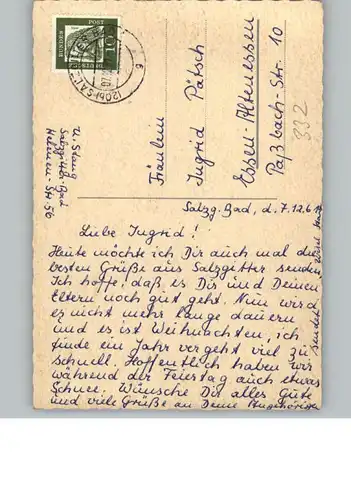 DEUTSCHE
BUNDES
POST
10
Fräulein
Ingrid Pätsch
Essen-Altenessen
Paßbach-Str. 10
332
Salzgitter-Bad
Salzg. Bad, d. 7.12.61
Liebe Ingrid!
Heute möchte ich Dir auch mal die
besten Grüße aus Salzgitter senden.
Ich hoffe, daß es Dir und Deinen
Eltern noch gut geht. Nun wird
es nicht mehr lange dauern
und es ist Weihnachten, ich
finde ein Jahr vergeht viel zu
schnell. Hoffentlich haben wir
während der Feiertag auch etwas
Schnee. Wünsche Dir alles Gute
und viele Grüße an Deine Angehörigen
sendet